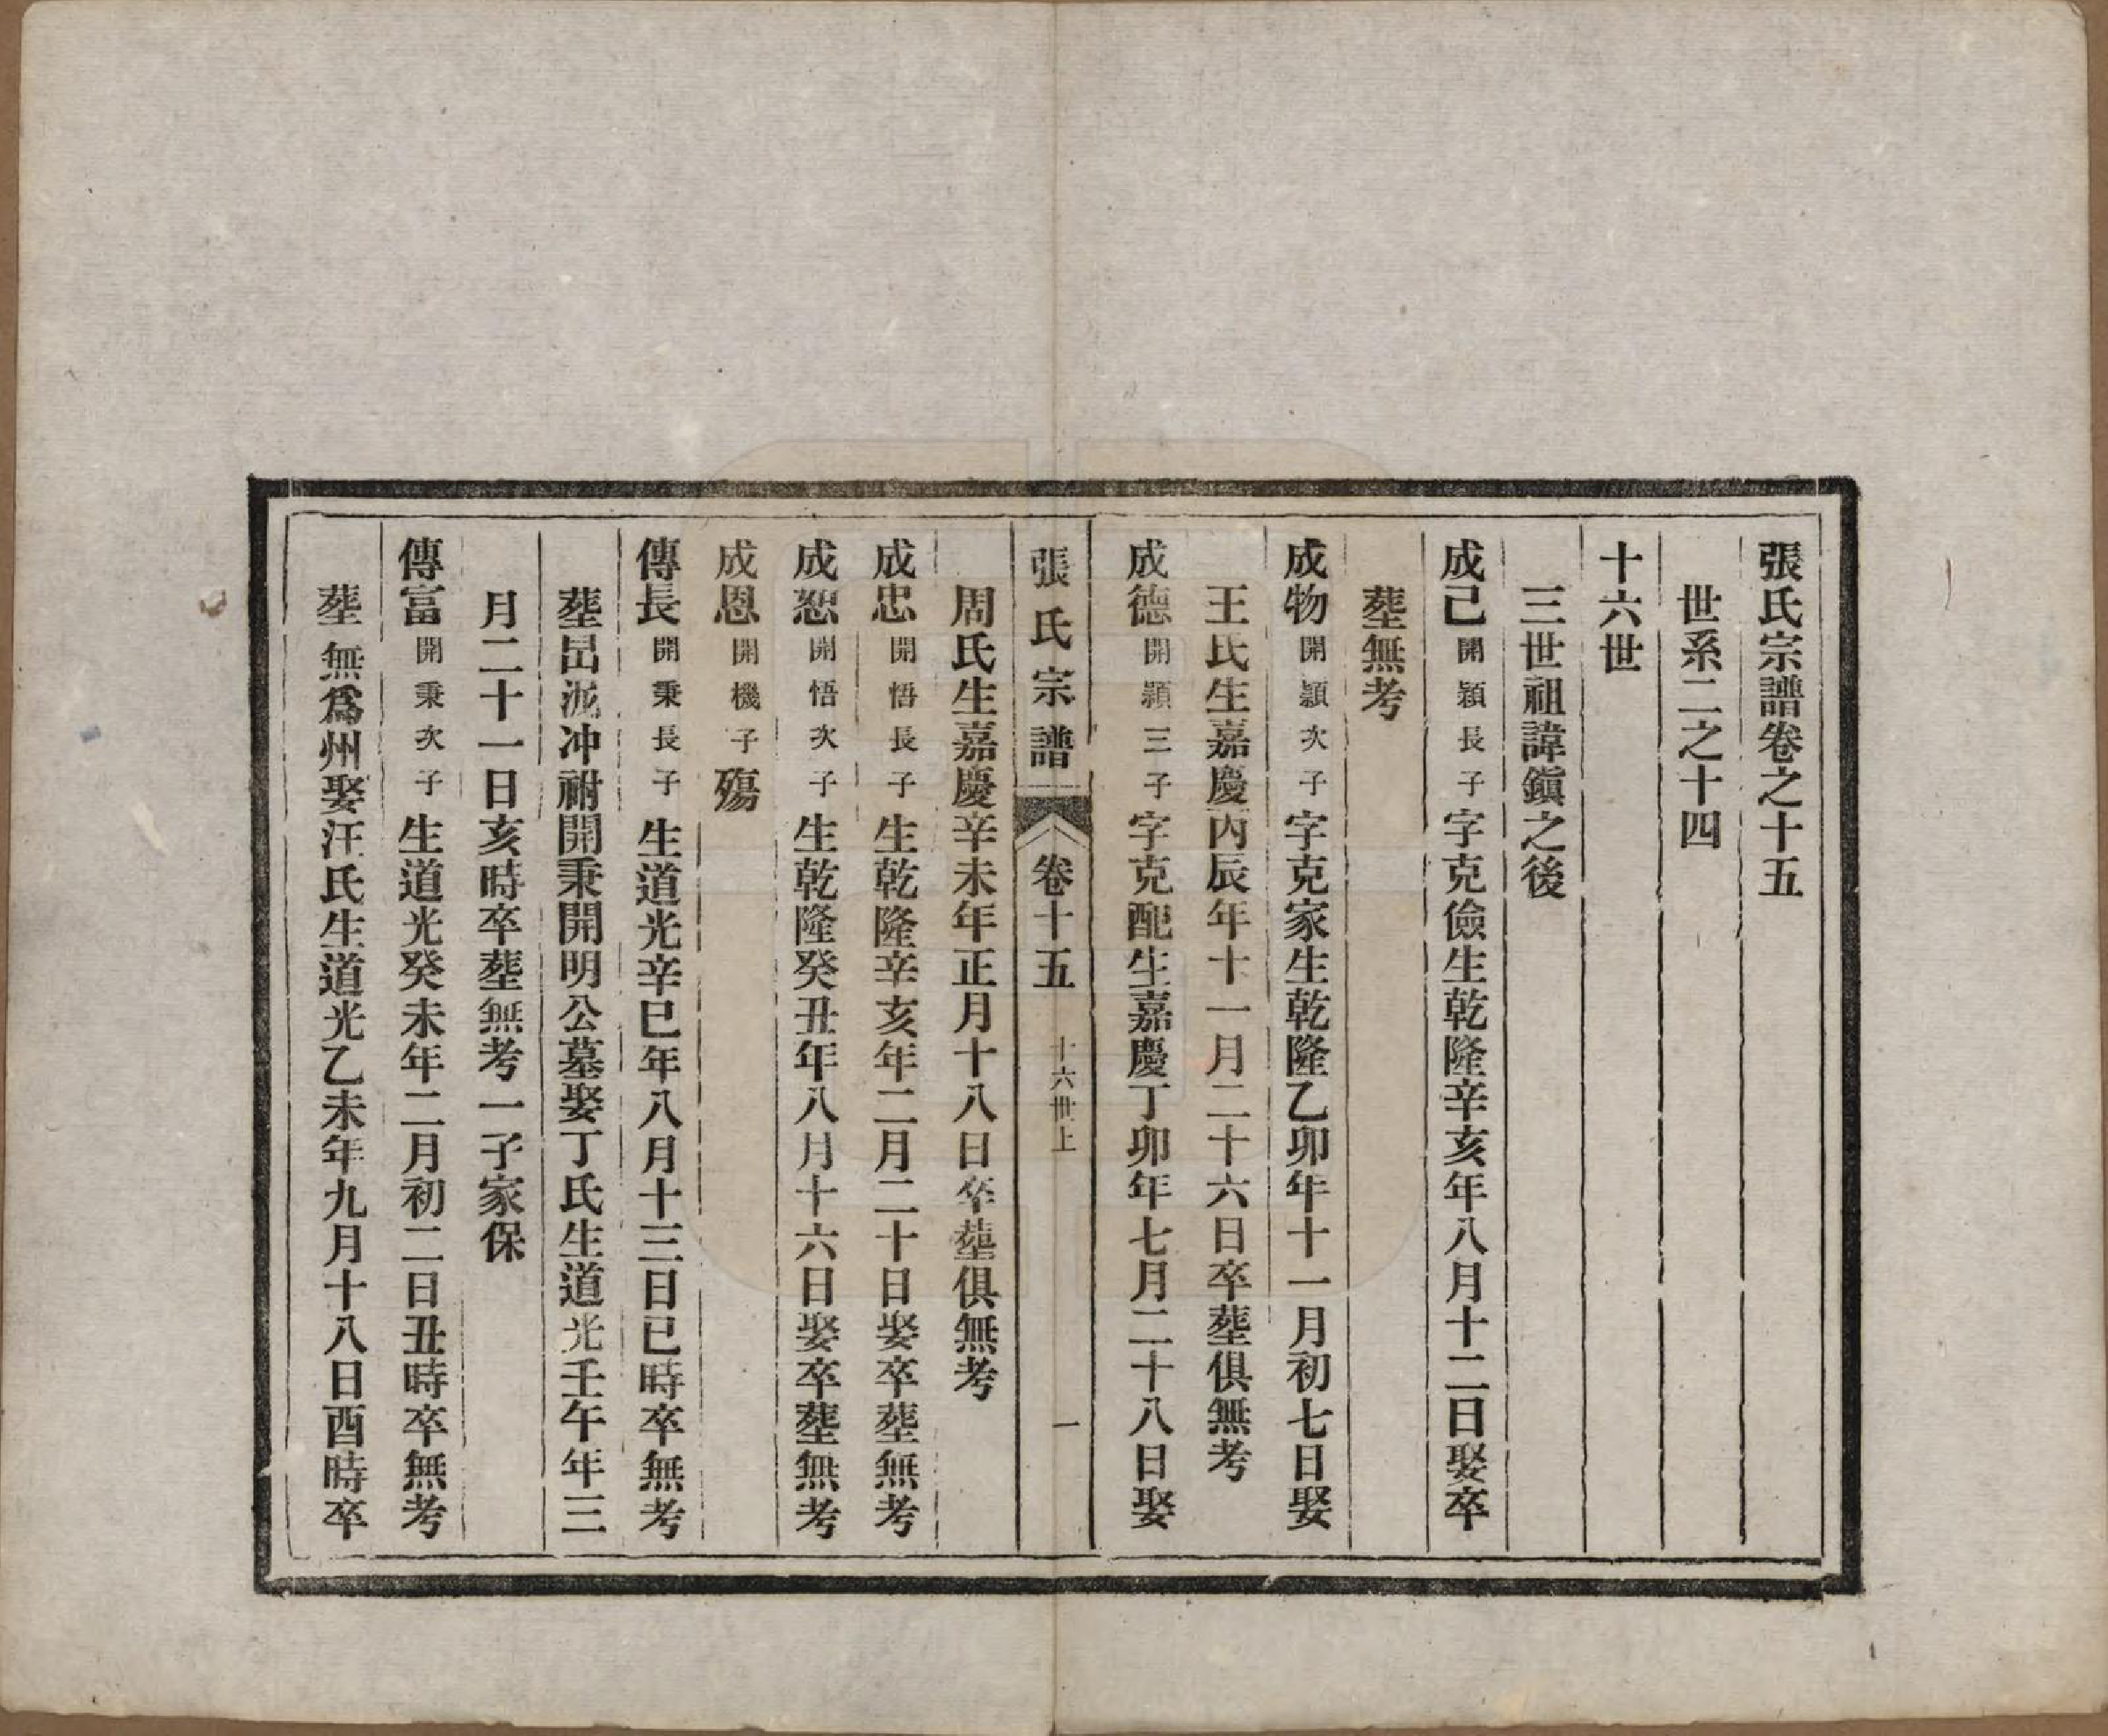 張氏宗譜卷之十五
世系二之十四
十六世
三世祖諱鎭之後
成己開穎長子字克儉生乾隆辛亥年八月十二日娶卒
葬無考
成物開穎次子字克家生乾隆乙卯年十一月初七日娶
王氏生嘉慶丙辰年十一月二十六日卒葬俱無考
成德開穎三子字克配生嘉慶丁卯年七月二十八日娶
張氏宗譜 卷十五 十六世上 一
周氏生嘉慶辛未年正月十八日卒葬俱無考
成忠開悟長子生乾隆辛亥年二月二十日娶卒葬無考
成恕開悟次子生乾隆癸丑年八月十六日娶卒葬無考
成恩開機子殤
傳長開秉長子生道光辛巳年八月十三日巳時卒無考
葬冲祔開秉開明公墓娶丁氏生道光壬午年三
月二十一日亥時卒葬無考一子家保
傳富開秉次子生道光癸未年二月初二日丑時卒無考
葬無爲州娶汪氏生道光乙未年九月十八日酉時卒